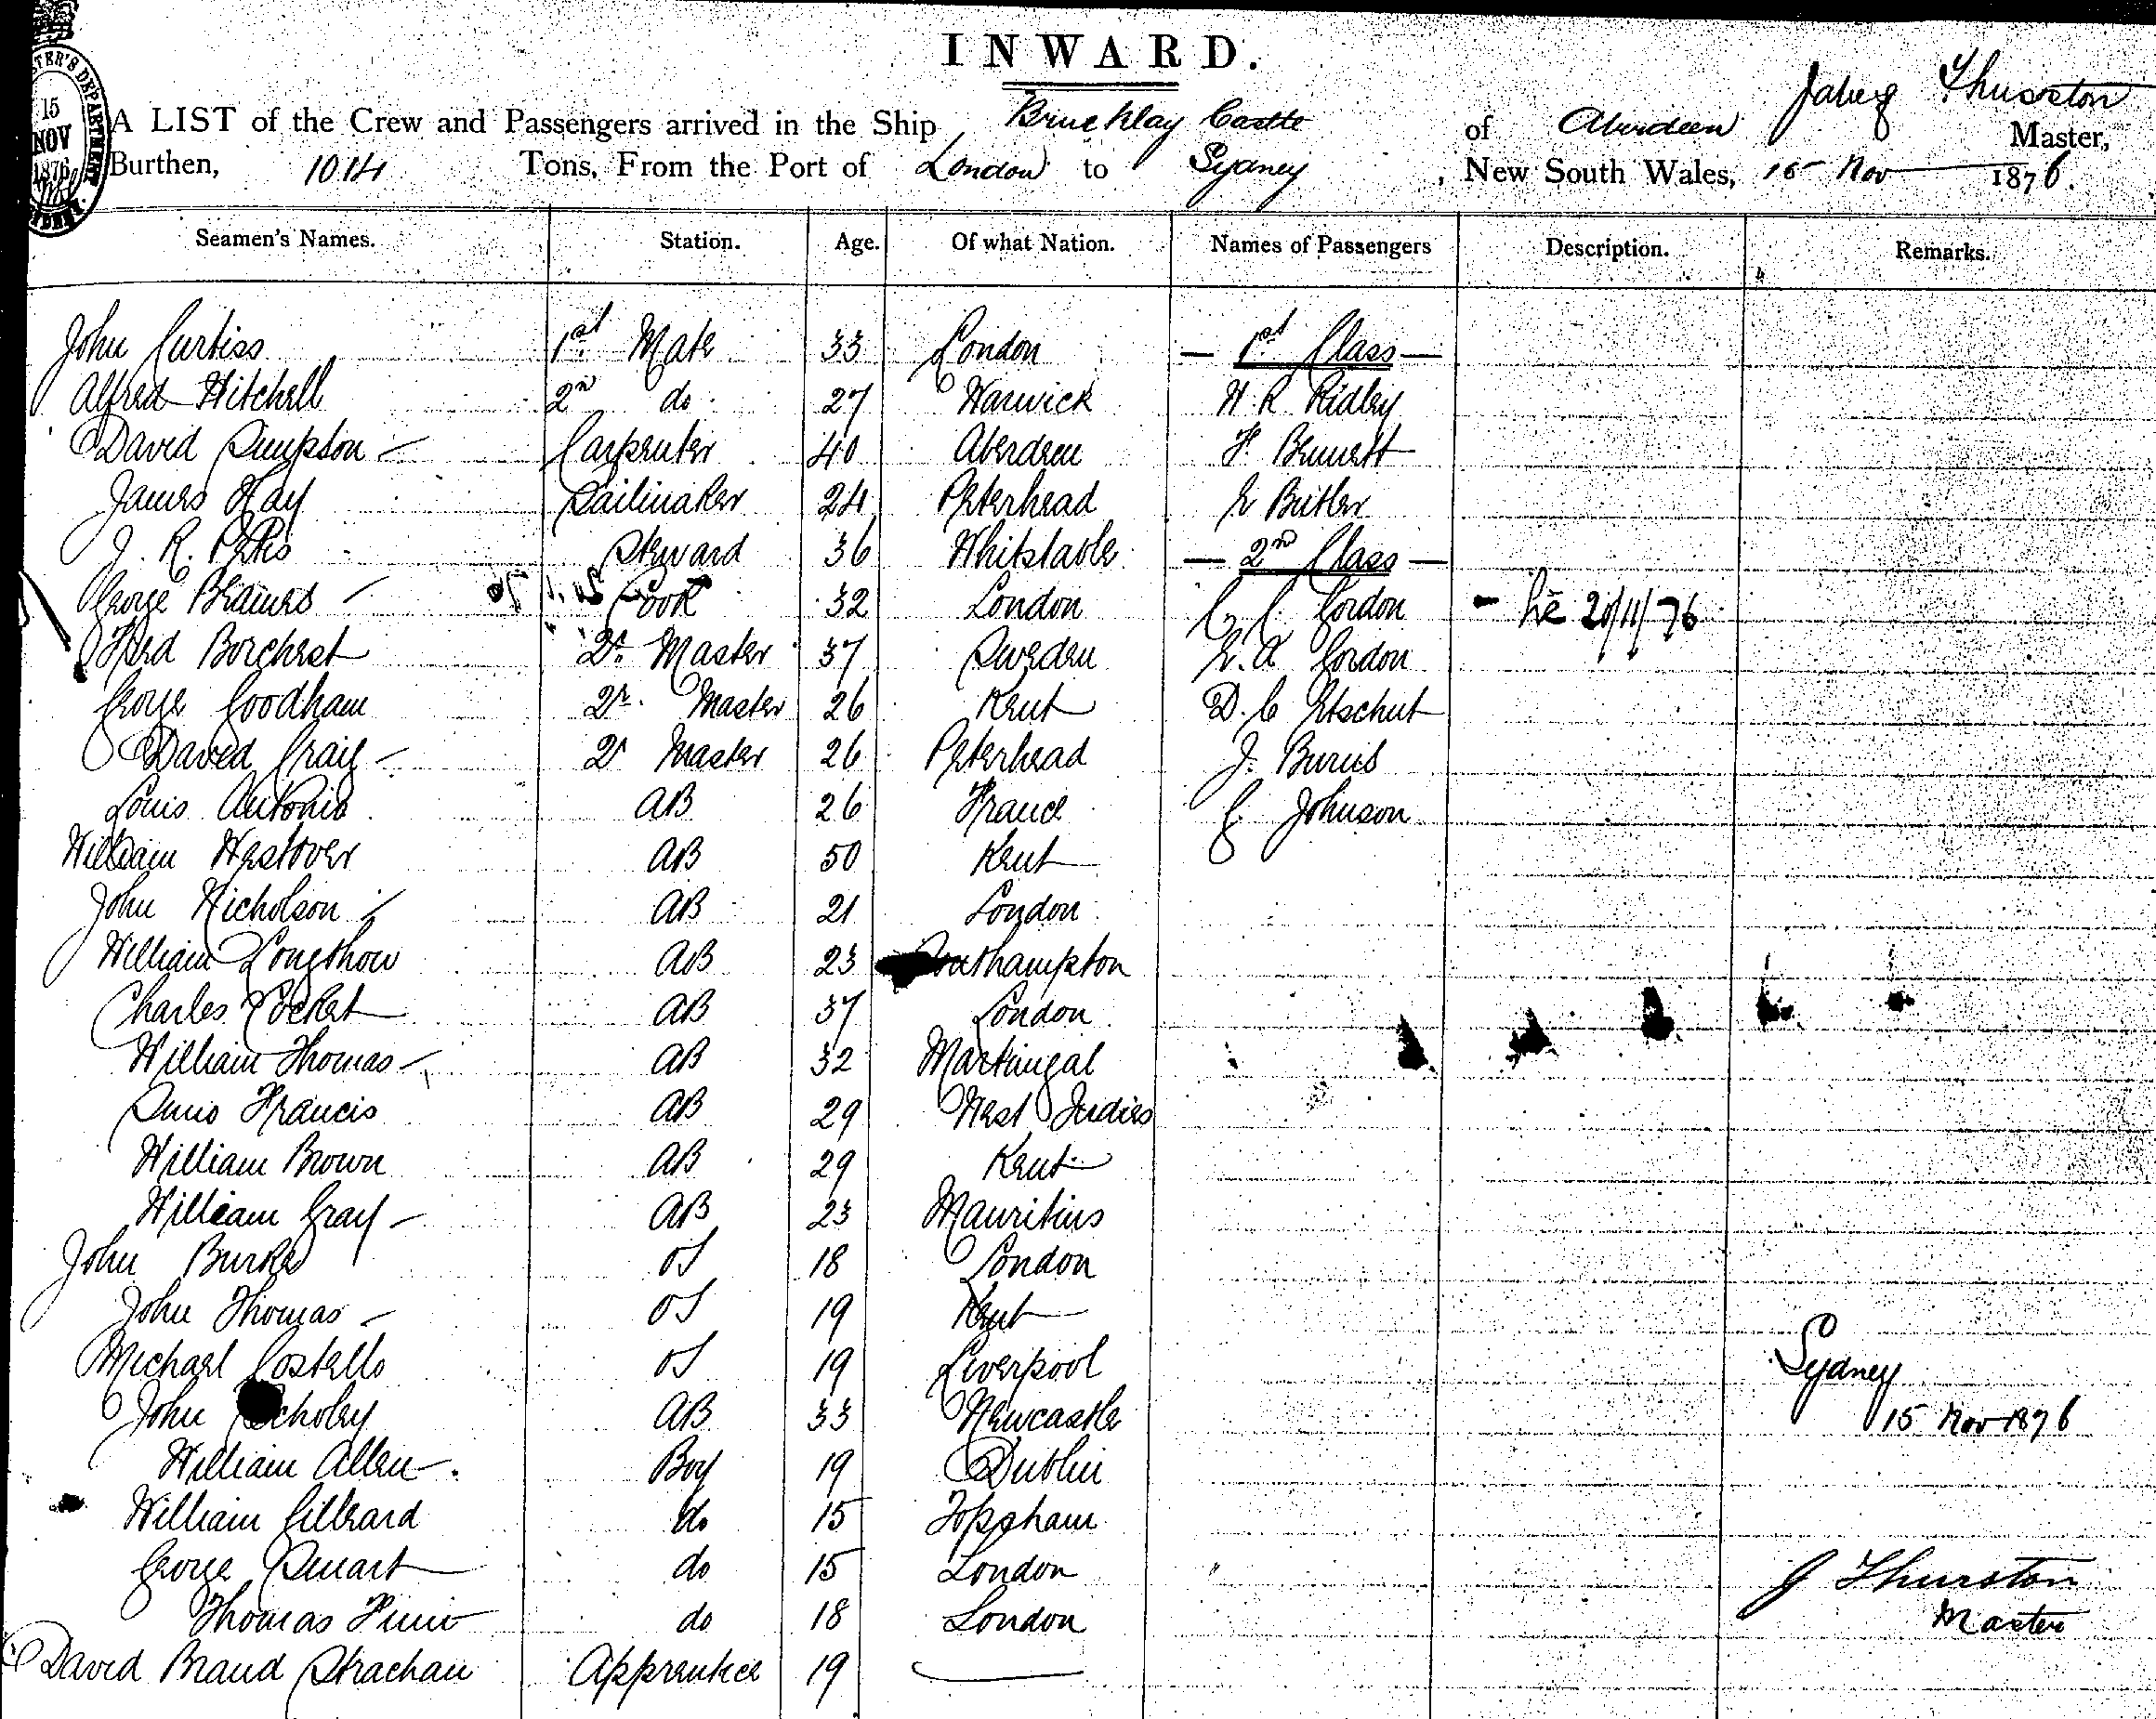 INWARD.
A LIST of the Crew and Passengers arrived in the Ship Brucklay Castle of Aberdeen Jabez Thurston Master,
Burthen, 1014 Tons, From the Port of London to Sydney, New South Wales, 15 Nov 1876.
15 NOV 1876
Seamen's Names. Station. Age. Of what Nation. Names of Passengers Description. Remarks.
John Curtiss 1st Mate 33 London — 1st Class —
Alfred Hitchell 2nd do 27 Warwick W. R Ridley
David Simpson Carpenter 40 Aberdeen F. Bennett
James Hay Sailmaker 24 Peterhead E Butler
J. R. Steward 36 Whitstable — 2nd Class —
George Cook 32 London C. C. Gordon 20/11/76
Fred Borchert Qr. Master 37 Sweden E. A Gordon
George Goodham Qr. Master 26 Kent D. C
David Craig Qr Master 26 Peterhead J. Burns
Louis Antonio AB 26 France C. Johnson
William Westover AB 50 Kent
John Nicholson AB 21 London
William AB 23 Southampton
Charles Cocket AB 37 London
William Thomas AB 32
Francis AB 29 West Indies
William Brown AB 29 Kent
William Gray AB 23 Mauritius
John Burke OS 18 London
John Thomas OS 19 Kent
Michael Costello OS 19 Liverpool Sydney
John Scholey AB 33 Newcastle 15 Nov 1876
William Allen Boy 19 Dublin
William Gillard do 15 Topsham
George Smart do 15 London J Thurston
Thomas do 18 London Master
David Brand Strachan Apprentice 19 —